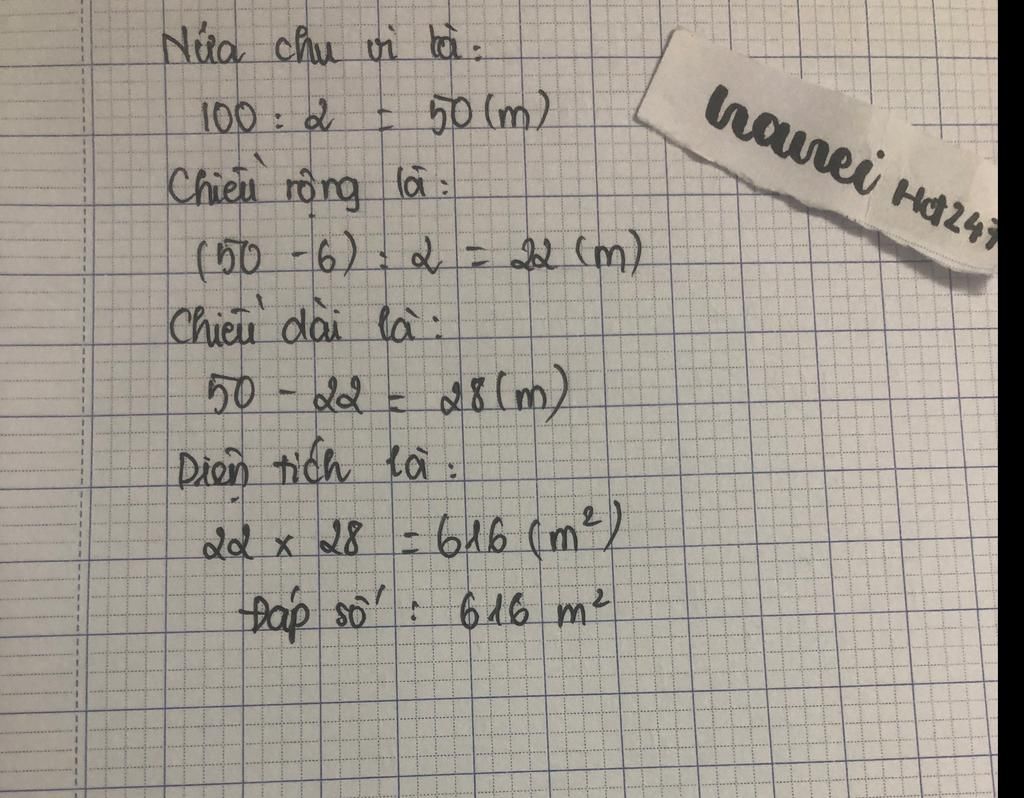 Nửa chu vi là:
100 : 2 = 50 (m)
Chiều rộng là:
(50 - 6) : 2 = 22 (m)
Chiều dài là:
50 - 22 = 28 (m)
Diện tích là:
22 x 28 = 616 (m²)
Đáp số : 616 m²